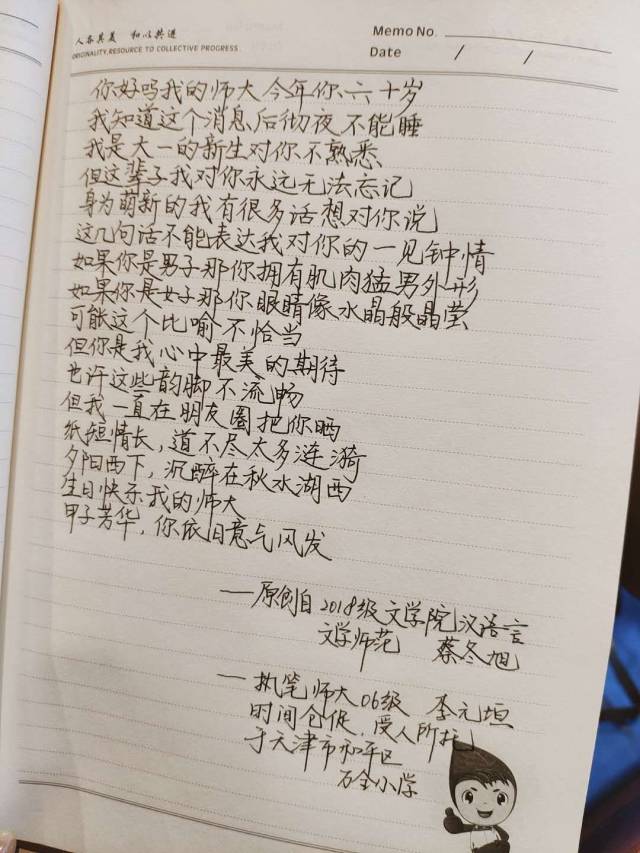 人各其美 和以共进
ORIGINALITY, RESOURCE TO COLLECTIVE PROGRESS
Memo No.
Date / /
你好吗我的师大今年你六十岁
我知道这个消息后彻夜不能睡
我是大一的新生对你不熟悉
但这辈子我对你永远无法忘记
身为萌新的我有很多话想对你说
这几句话不能表达我对你的一见钟情
如果你是男子那你拥有肌肉猛男外形
如果你是女子那你眼睛像水晶般晶莹
可能这个比喻不恰当
但你是我心中最美的期待
也许这些韵脚不流畅
但我一直在朋友圈把你晒
纸短情长，道不尽太多涟漪
夕阳西下，沉醉在秋水湖西
生日快乐我的师大
甲子芳华，你依旧意气风发
——原创自2018级文学院汉语言
文学师范 蔡冬旭
——执笔师大06级 李元垣
时间仓促，受人所托
于天津市和平区
万全小学